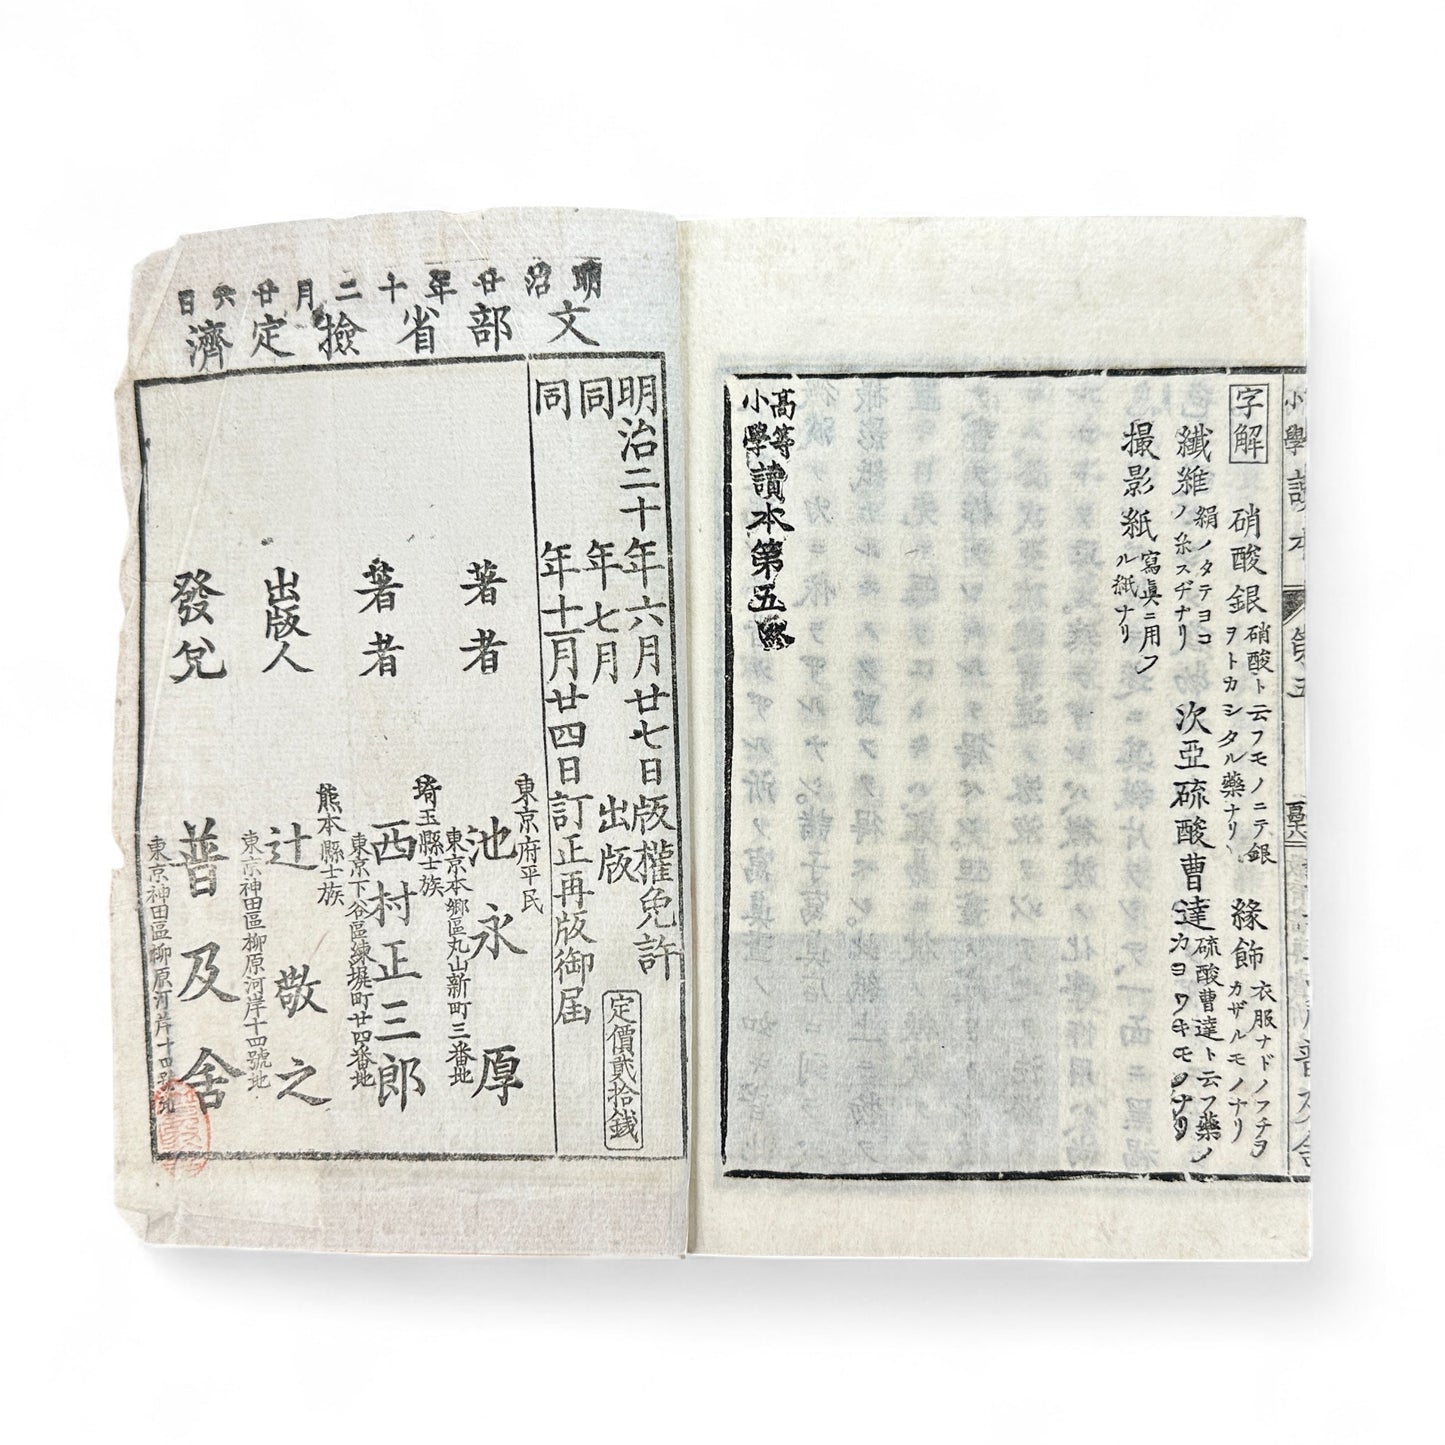 字解
硝酸銀 硝酸ト云フモノニテ銀ヲトカシタル藥ナリ
緣飾 衣服ナドノフチヲカザルモノナリ
纎維 絹ノタテヨコノ糸スヂナリ
次亞硫酸曹達 硫酸曹達ト云フ藥ノカヨワキモノナリ
撮影紙 寫眞ニ用フル紙ナリ
高等小學讀本第五終
小學讀本
第五
普及舍
明治廿年十二月廿六日
文部省檢定濟
明治二十年六月廿七日版權免許
同年七月出版
同年十一月廿四日訂正再版御届
定價貳拾錢
著者 東京府平民 池永厚 東京本鄉區丸山新町三番地
著者 埼玉縣士族 西村正三郎 東京下谷區練塀町廿四番地
出版人 熊本縣士族 辻敬之 東京神田區柳原河岸十四號地
發兌 普及舍 東京神田區柳原河岸十四號地